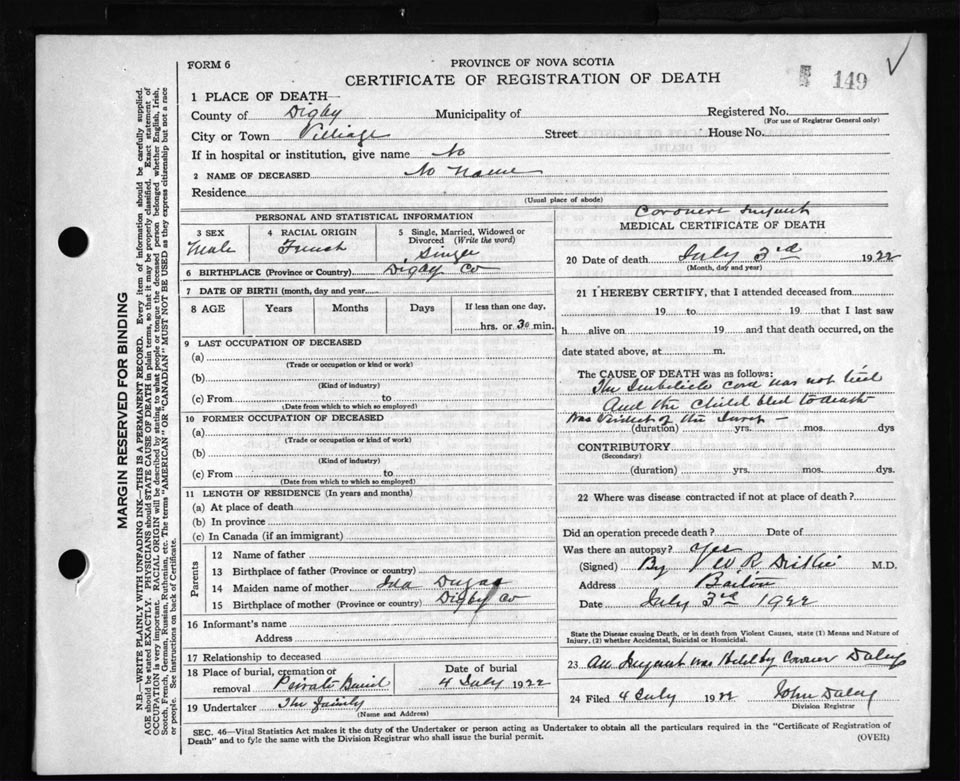 149
FORM 6
PROVINCE OF NOVA SCOTIA
CERTIFICATE OF REGISTRATION OF DEATH
1 PLACE OF DEATH—
County of Digby Municipality of Registered No.
(For use of Registrar General only)
City or Town Village Street House No.
If in hospital or institution, give name No
2 NAME OF DECEASED No Name
Residence
(Usual place of abode)
PERSONAL AND STATISTICAL INFORMATION
3 SEX
Male
4 RACIAL ORIGIN
French
5 Single, Married, Widowed or
Divorced (Write the word)
Single
6 BIRTHPLACE (Province or Country) Digby Co
7 DATE OF BIRTH (month, day and year)
8 AGE Years Months Days If less than one day,
hrs. or 30 min.
9 LAST OCCUPATION OF DECEASED
(a)
(Trade or occupation or kind or work)
(b)
(Kind of industry)
(c) From to
(Date from which to which so employed)
10 FORMER OCCUPATION OF DECEASED
(a)
(Trade or occupation or kind of work)
(b)
(Kind of industry)
(c) From to
(Date from which to which so employed)
11 LENGTH OF RESIDENCE (In years and months)
(a) At place of death
(b) In province
(c) In Canada (if an immigrant)
Parents
12 Name of father
13 Birthplace of father (Province or country)
14 Maiden name of mother Ida Dugas
15 Birthplace of mother (Province or country) Digby Co
16 Informant's name
Address
17 Relationship to deceased
18 Place of burial, cremation or
removal Private Burial
Date of burial
4 July 1922
19 Undertaker The family
(Name and Address)
Coroners Inquest
MEDICAL CERTIFICATE OF DEATH
20 Date of death July 3rd 1922
(Month, day and year)
21 I HEREBY CERTIFY, that I attended deceased from
19 to 19 that I last saw
h alive on 19 and that death occurred, on the
date stated above, at m.
The CAUSE OF DEATH was as follows:
The cord was not tied
And the child bled to death
was verdict of the
(duration) yrs. mos. dys
CONTRIBUTORY
(Secondary)
(duration) yrs. mos. dys.
22 Where was disease contracted if not at place of death?
Did an operation precede death? Date of
Was there an autopsy? Yes
(Signed) By W R Dickie M.D.
Address Barton
Date July 3rd 1922
State the Disease causing Death, or in death from Violent Causes, state (1) Means and Nature of
Injury, (2) whether Accidental, Suicidal or Homicidal.
23 An Inquest was Held by Coroner Daley
24 Filed 4 July 1922 John Daley
Division Registrar
SEC. 46—Vital Statistics Act makes it the duty of the Undertaker or person acting as Undertaker to obtain all the particulars required in the "Certificate of Registration of
Death" and to fyle the same with the Division Registrar who shall issue the burial permit.
(OVER)
MARGIN RESERVED FOR BINDING
N.B.—WRITE PLAINLY WITH UNFADING INK—THIS IS A PERMANENT RECORD. Every item of information should be carefully supplied.
AGE should be stated EXACTLY. PHYSICIANS should STATE CAUSE OF DEATH in plain terms, so that it may be properly classified. Exact statement of
OCCUPATION is very important. RACIAL ORIGIN will be described by stating to what people or tongue the deceased person belonged whether English, Irish,
Scotch, French, German, Russian, Ruthenian, etc. The terms "AMERICAN" OR "CANADIAN" MUST NOT BE USED as they express citizenship but not a race
or people. See instructions on back of Certificate.